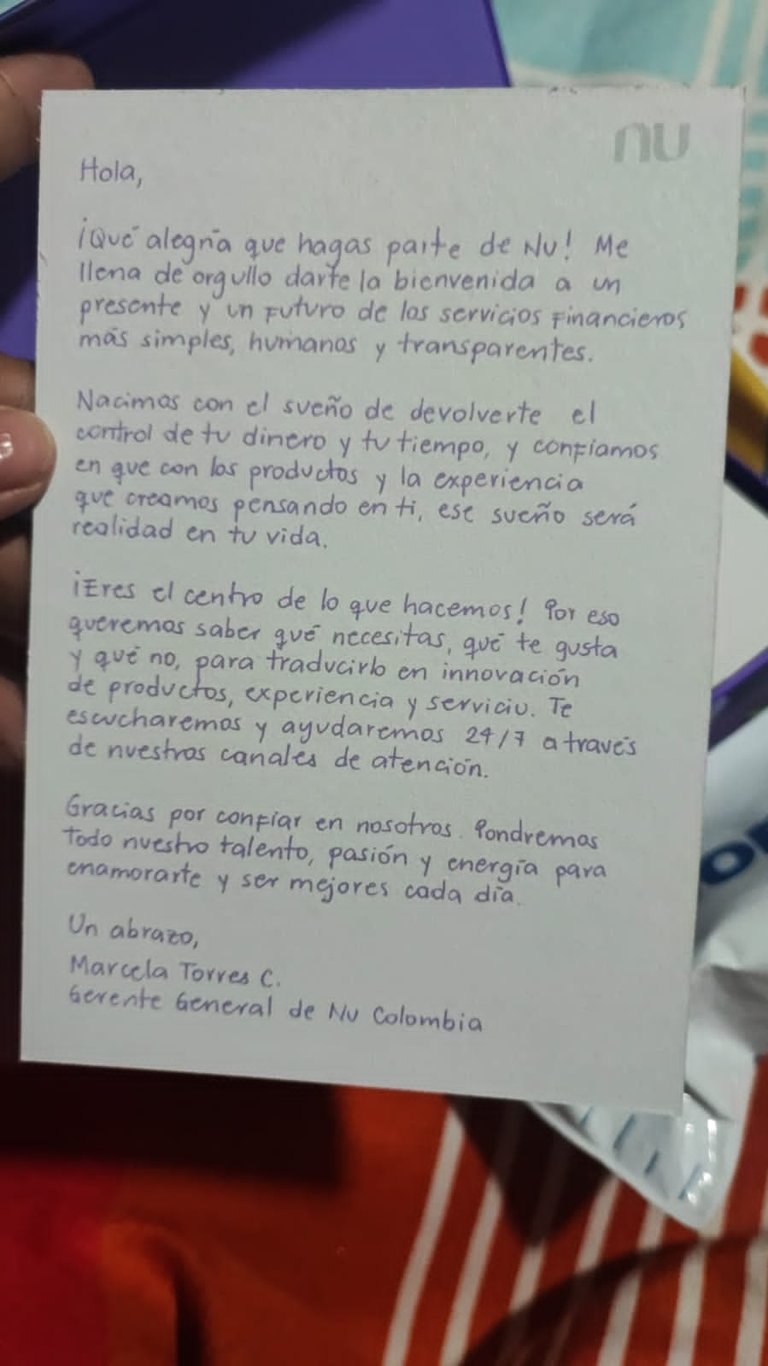 nu
Hola,
¡Qué alegría que hagas parte de Nu! Me
llena de orgullo darte la bienvenida a un
presente y un futuro de los servicios financieros
más simples, humanos y transparentes.
Nacimos con el sueño de devolverte el
control de tu dinero y tu tiempo, y confiamos
en que con los productos y la experiencia
que creamos pensando en ti, ese sueño será
realidad en tu vida.
¡Eres el centro de lo que hacemos! Por eso
queremos saber qué necesitas, qué te gusta
y qué no, para traducirlo en innovación
de productos, experiencia y servicio. Te
escucharemos y ayudaremos 24/7 a través
de nuestros canales de atención.
Gracias por confiar en nosotros. Pondremos
todo nuestro talento, pasión y energía para
enamorarte y ser mejores cada día.
Un abrazo,
Marcela Torres C.
Gerente General de Nu Colombia